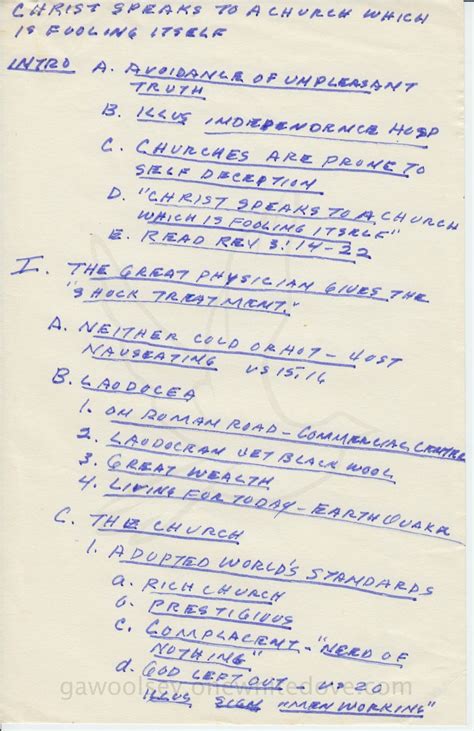 CHRIST SPEAKS TO A CHURCH WHICH
IS FOOLING ITSELF
INTRO A. AVOIDANCE OF UNPLEASANT
TRUTH
B. ILLUS INDEPENDORNCE HOSP
C. CHURCHES ARE PRONE TO
SELF DECEPTION
D. "CHRIST SPEAKS TO A CHURCH
WHICH IS FOOLING ITSELF"
E. READ REV 3:14-22
I. THE GREAT PHYSICIAN GIVES THE
"SHOCK TREATMENT."
A. NEITHER COLD OR HOT - JUST
NAUSEATING VS 15,16
B. LAODOCEA
1. ON ROMAN ROAD - COMMERCIAL CENTRE
2. LAODOCEAN JET BLACK WOOL
3. GREAT WEALTH
4. LIVING FOR TODAY - EARTHQUAKE
C. THE CHURCH
1. ADOPTED WORLD'S STANDARDS
a. RICH CHURCH
b. PRESTIGIOUS
c. COMPLACENT - "NEED OF
NOTHING"
d. GOD LEFT OUT - VS 20
ILLUS SIGN "MEN WORKING"
gawoolsey.onewhitedove.com